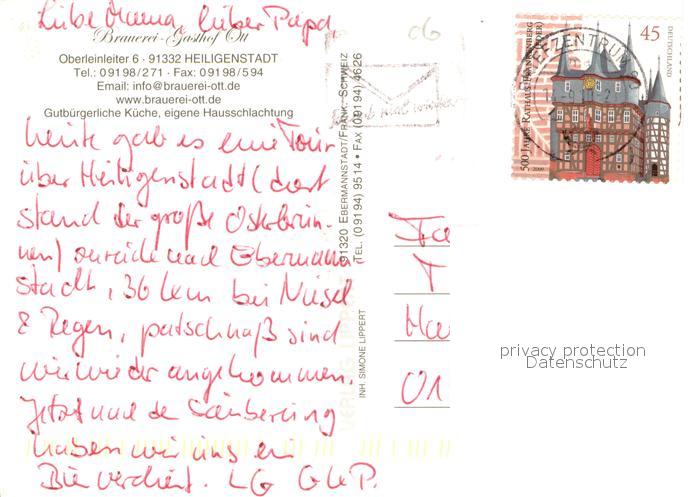 Liebe Mama, lieber Papa,
Brauerei-Gasthof Ott
Oberleinleiter 6 · 91332 HEILIGENSTADT
Tel.: 09198/271 · Fax: 09198/594
Email: info@brauerei-ott.de
www.brauerei-ott.de
Gutbürgerliche Küche, eigene Hausschlachtung
heute gab es eine Tour
über Heiligenstadt (dort
stand der große Osterbrun-
nen) zurück nach Ebermann-
stadt, 36 km bei Niesel
& Regen, patschnaß sind
wir wieder angekommen.
Jetzt nach der Säuberung
haben wir uns ein
Bier verdient. LG G&P.
91320 EBERMANNSTADT/FRÄNK. SCHWEIZ
TEL. (09194) 9514 • FAX (09194) 4626
INH. SIMONE LIPPERT
VERLAG LIPPERT
06
BRIEFZENTRUM
45
DEUTSCHLAND
500 JAHRE RATHAUS FRANKENBERG (EDER)
2009
Fa
T
Ha
01
privacy protection
Datenschutz